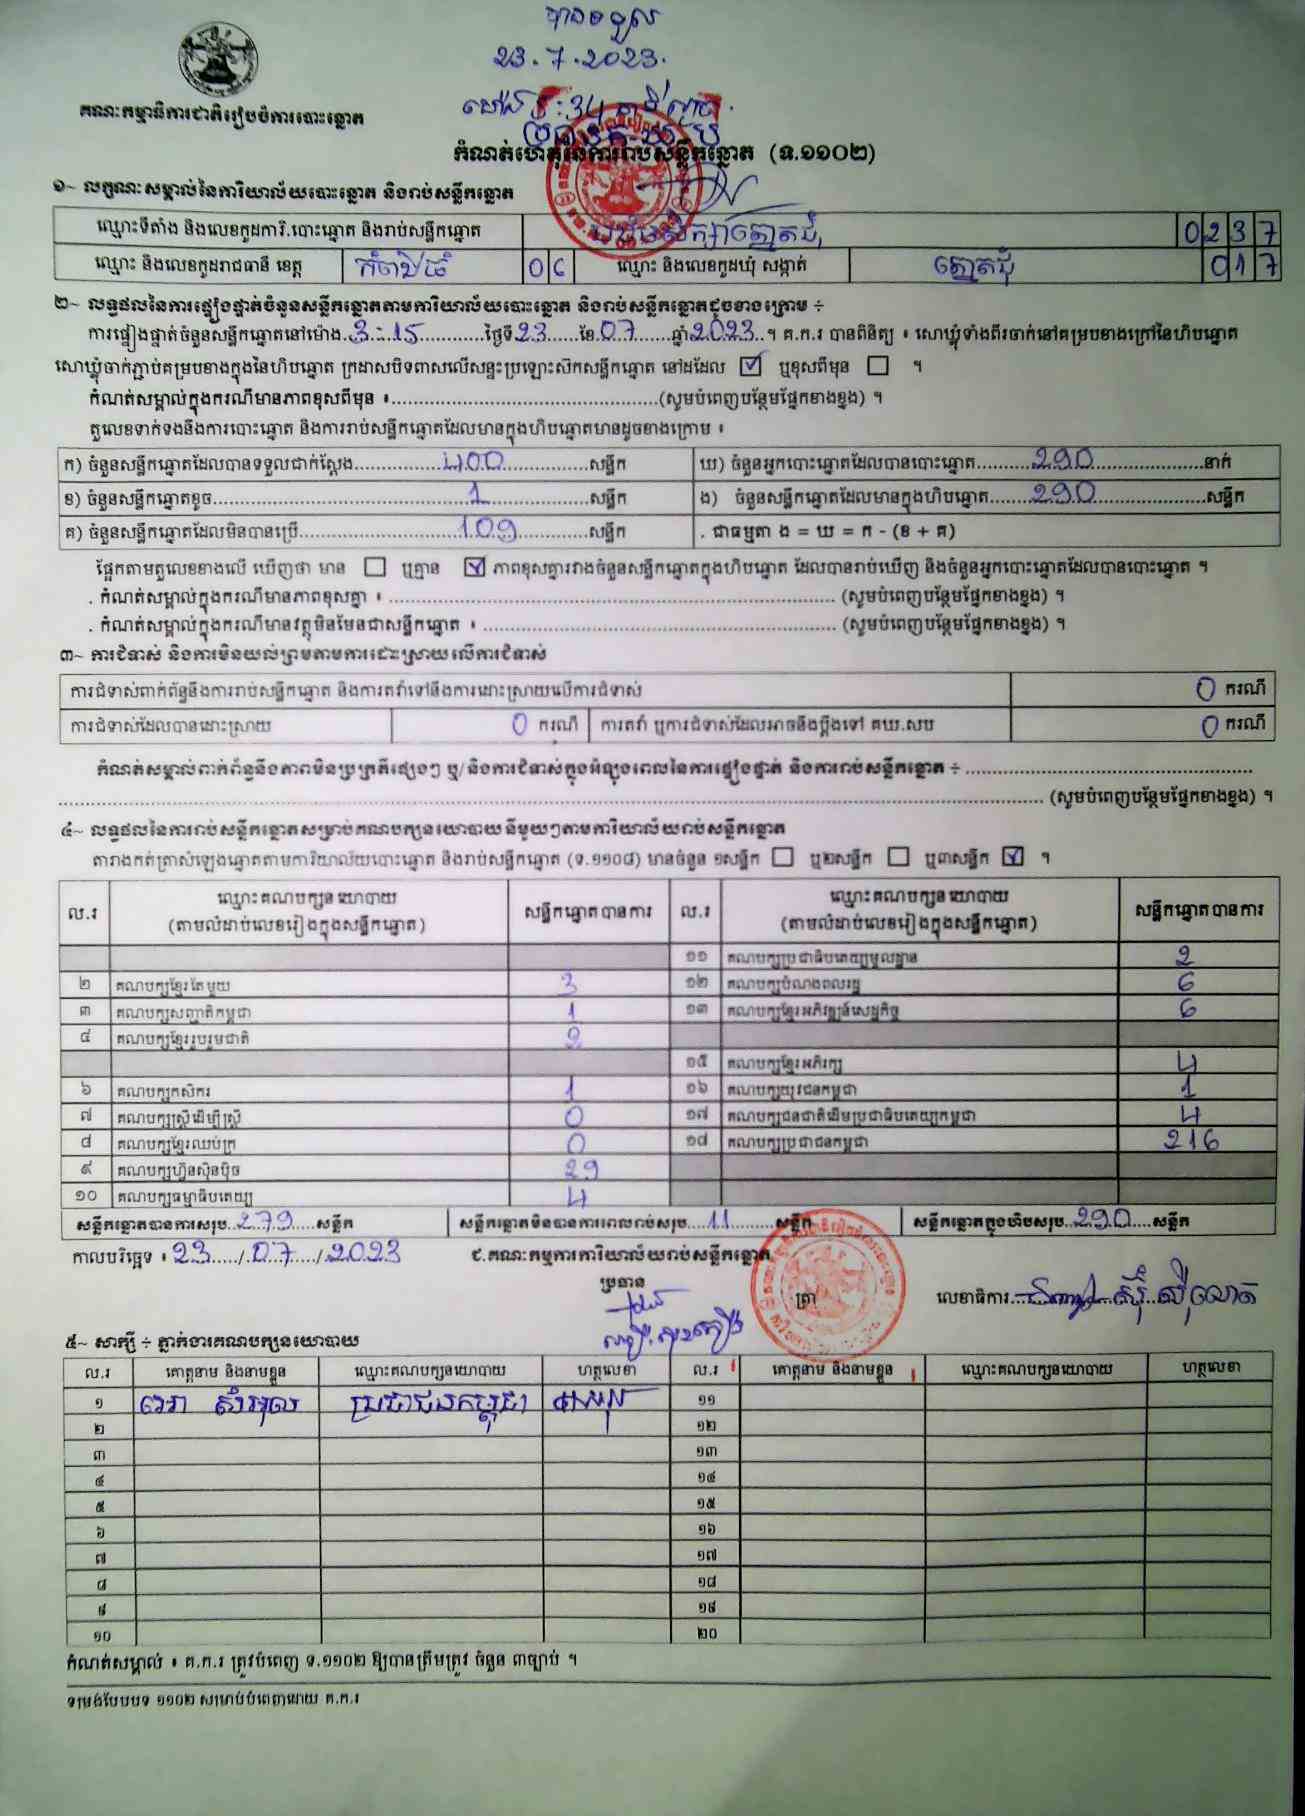 បានទទួល
23.7.2023.
គណៈកម្មាធិការជាតិរៀបចំការបោះឆ្នោត
កំណត់ហេតុនៃការរាប់សន្លឹកឆ្នោត (ទ.១១០២)
១~ លក្ខណៈសម្គាល់នៃការិយាល័យបោះឆ្នោត និងរាប់សន្លឹកឆ្នោត
ឈ្មោះទីតាំង និងលេខកូដការិ.បោះឆ្នោត និងរាប់សន្លឹកឆ្នោត ត្នោតជុំ 0237
ឈ្មោះ និងលេខកូដរាជធានី ខេត្ត កំពង់ធំ 06 ឈ្មោះ និងលេខកូដឃុំ សង្កាត់ ត្នោតជុំ 017
២~ លទ្ធផលនៃការផ្ទៀងផ្ទាត់ចំនួនសន្លឹកឆ្នោតតាមការិយាល័យបោះឆ្នោត និងរាប់សន្លឹកឆ្នោតដូចខាងក្រោម ÷
ការផ្ទៀងផ្ទាត់ចំនួនសន្លឹកឆ្នោតនៅម៉ោង 3:15 ថ្ងៃទី 23 ខែ 07 ឆ្នាំ 2023 ។ គ.ក.រ បានពិនិត្យ ៖ សោឃ្លុំទាំងពីរចាក់នៅគម្របខាងក្រៅនៃហិបឆ្នោត
សោឃ្លុំចាក់ភ្ជាប់គម្របខាងក្នុងនៃហិបឆ្នោត ក្រដាសបិទពាសលើសន្ទះប្រឡោះស៊កសន្លឹកឆ្នោត នៅដដែល ☑ ឬខុសពីមុន ☐ ។
កំណត់សម្គាល់ក្នុងករណីមានភាពខុសពីមុន ៖ (សូមបំពេញបន្ថែមផ្នែកខាងខ្នង) ។
តួលេខទាក់ទងនឹងការបោះឆ្នោត និងការរាប់សន្លឹកឆ្នោតដែលមានក្នុងហិបឆ្នោតមានដូចខាងក្រោម ៖
ក) ចំនួនសន្លឹកឆ្នោតដែលបានទទួលជាក់ស្ដែង 400 សន្លឹក ឃ) ចំនួនអ្នកបោះឆ្នោតដែលបានបោះឆ្នោត 290 នាក់
ខ) ចំនួនសន្លឹកឆ្នោតខូច 1 សន្លឹក ង) ចំនួនសន្លឹកឆ្នោតដែលមានក្នុងហិបឆ្នោត 290 សន្លឹក
គ) ចំនួនសន្លឹកឆ្នោតដែលមិនបានប្រើ 109 សន្លឹក . ជាធម្មតា ង = ឃ = ក - (ខ + គ)
ផ្អែកតាមតួលេខខាងលើ ឃើញថា មាន ☐ ឬគ្មាន ☑ ភាពខុសគ្នារវាងចំនួនសន្លឹកឆ្នោតក្នុងហិបឆ្នោត ដែលបានរាប់ឃើញ និងចំនួនអ្នកបោះឆ្នោតដែលបានបោះឆ្នោត ។
. កំណត់សម្គាល់ក្នុងករណីមានភាពខុសគ្នា ៖ (សូមបំពេញបន្ថែមផ្នែកខាងខ្នង) ។
. កំណត់សម្គាល់ក្នុងករណីមានវត្ថុមិនមែនជាសន្លឹកឆ្នោត ៖ (សូមបំពេញបន្ថែមផ្នែកខាងខ្នង) ។
៣~ ការជំទាស់ និងការមិនយល់ព្រមតាមការដោះស្រាយលើការជំទាស់
ការជំទាស់ពាក់ព័ន្ធនឹងការរាប់សន្លឹកឆ្នោត និងការតវ៉ាទៅនឹងការដោះស្រាយលើការជំទាស់ 0 ករណី
ការជំទាស់ដែលបានដោះស្រាយ 0 ករណី ការតវ៉ា ឬការជំទាស់ដែលអាចនឹងប្ដឹងទៅ គឃ.សប 0 ករណី
កំណត់សម្គាល់ពាក់ព័ន្ធនឹងភាពមិនប្រក្រតីផ្សេងៗ ឬ/និងការជំទាស់ក្នុងអំឡុងពេលនៃការផ្ទៀងផ្ទាត់ និងការរាប់សន្លឹកឆ្នោត ÷
(សូមបំពេញបន្ថែមផ្នែកខាងខ្នង) ។
៤~ លទ្ធផលនៃការរាប់សន្លឹកឆ្នោតសម្រាប់គណបក្សនយោបាយនីមួយៗតាមការិយាល័យរាប់សន្លឹកឆ្នោត
តារាងកត់ត្រាសំឡេងឆ្នោតតាមការិយាល័យបោះឆ្នោត និងរាប់សន្លឹកឆ្នោត (ទ.១១០៨) មានចំនួន ១សន្លឹក ☐ ឬ២សន្លឹក ☐ ឬ៣សន្លឹក ☑ ។
ល.រ ឈ្មោះគណបក្សនយោបាយ (តាមលំដាប់លេខរៀងក្នុងសន្លឹកឆ្នោត) សន្លឹកឆ្នោតបានការ ល.រ ឈ្មោះគណបក្សនយោបាយ (តាមលំដាប់លេខរៀងក្នុងសន្លឹកឆ្នោត) សន្លឹកឆ្នោតបានការ
១១ គណបក្សប្រជាធិបតេយ្យមូលដ្ឋាន 2
២ គណបក្សខ្មែរតែមួយ 3 ១២ គណបក្សបំណងពលរដ្ឋ 6
៣ គណបក្សសញ្ជាតិកម្ពុជា 1 ១៣ គណបក្សខ្មែរអភិវឌ្ឍន៍សេដ្ឋកិច្ច 6
៤ គណបក្សខ្មែររួបរួមជាតិ 2
១៥ គណបក្សខ្មែរអភិរក្ស 4
៦ គណបក្សកសិករ 1 ១៦ គណបក្សយុវជនកម្ពុជា 1
៧ គណបក្សស្រ្តីដើម្បីស្រ្តី 0 ១៧ គណបក្សជនជាតិដើមប្រជាធិបតេយ្យកម្ពុជា 4
៨ គណបក្សខ្មែរឈប់ក្រ 0 ១៨ គណបក្សប្រជាជនកម្ពុជា 216
៩ គណបក្សហ៊្វុនស៊ិនប៉ិច 29
១០ គណបក្សធម្មាធិបតេយ្យ 4
សន្លឹកឆ្នោតបានការសរុប 279 សន្លឹក សន្លឹកឆ្នោតមិនបានការពេលរាប់សរុប 11 សន្លឹក សន្លឹកឆ្នោតក្នុងហិបសរុប 290 សន្លឹក
កាលបរិច្ឆេទ ៖ 23/07/2023 ជ.គណៈកម្មការការិយាល័យរាប់សន្លឹកឆ្នោត
ប្រធាន ត្រា លេខាធិការ
៥~ សាក្សី ÷ ភ្នាក់ងារគណបក្សនយោបាយ
ល.រ គោត្តនាម និងនាមខ្លួន ឈ្មោះគណបក្សនយោបាយ ហត្ថលេខា ល.រ គោត្តនាម និងនាមខ្លួន ឈ្មោះគណបក្សនយោបាយ ហត្ថលេខា
១ ប្រជាជនកម្ពុជា ១១
២ ១២
៣ ១៣
៤ ១៤
៥ ១៥
៦ ១៦
៧ ១៧
៨ ១៨
៩ ១៩
១០ ២០
កំណត់សម្គាល់ ៖ គ.ក.រ ត្រូវបំពេញ ទ.១១០២ ឱ្យបានត្រឹមត្រូវ ចំនួន ៣ច្បាប់ ។
ទម្រង់បែបបទ ១១០២ សម្រាប់បំពេញដោយ គ.ក.រ